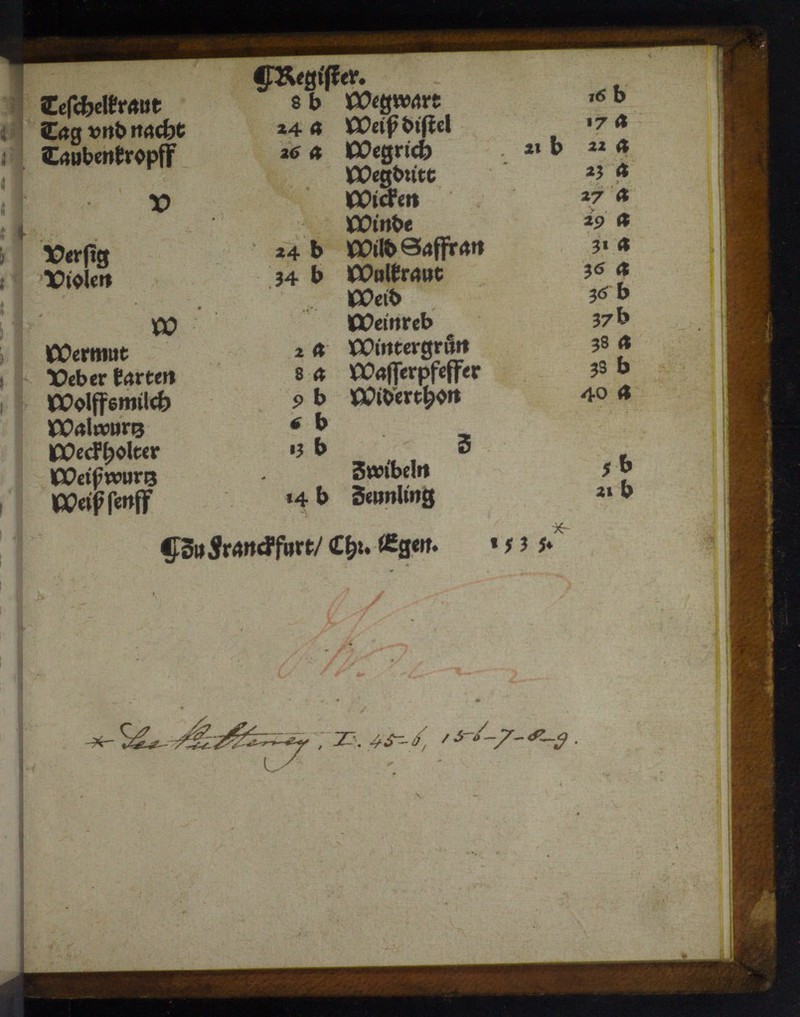 ¶Register.
Teschelkraut 8 b
Tag vnd nacht 24 a
Taubenkropff 26 a
V
Versig 24 b
Violen 34 b
W
Wermut 2 a
Veber karten 8 a
Wolffsmilch 9 b
Walwurtz 6 b
Weckholter 13 b
Weißwurtz
Weiß senff 14 b
Wegwart 16 b
Weiß distel 17 a
Wegrich 21 b 22 a
Wegdritt 23 a
Wicken 27 a
Winde 29 a
Wild Saffran 31 a
Wulkraut 36 a
Weid 36 b
Weinreb 37 b
Wintergrůn 38 a
Wasserpfeffer 38 b
Widerthon 40 a
Z
Zwibeln 5 b
Zeunling 21 b
¶Zu Franckfurt/ Chr. Egen. 1535. *
* See Pulteney, I. 45-6, 156-7-8-9.